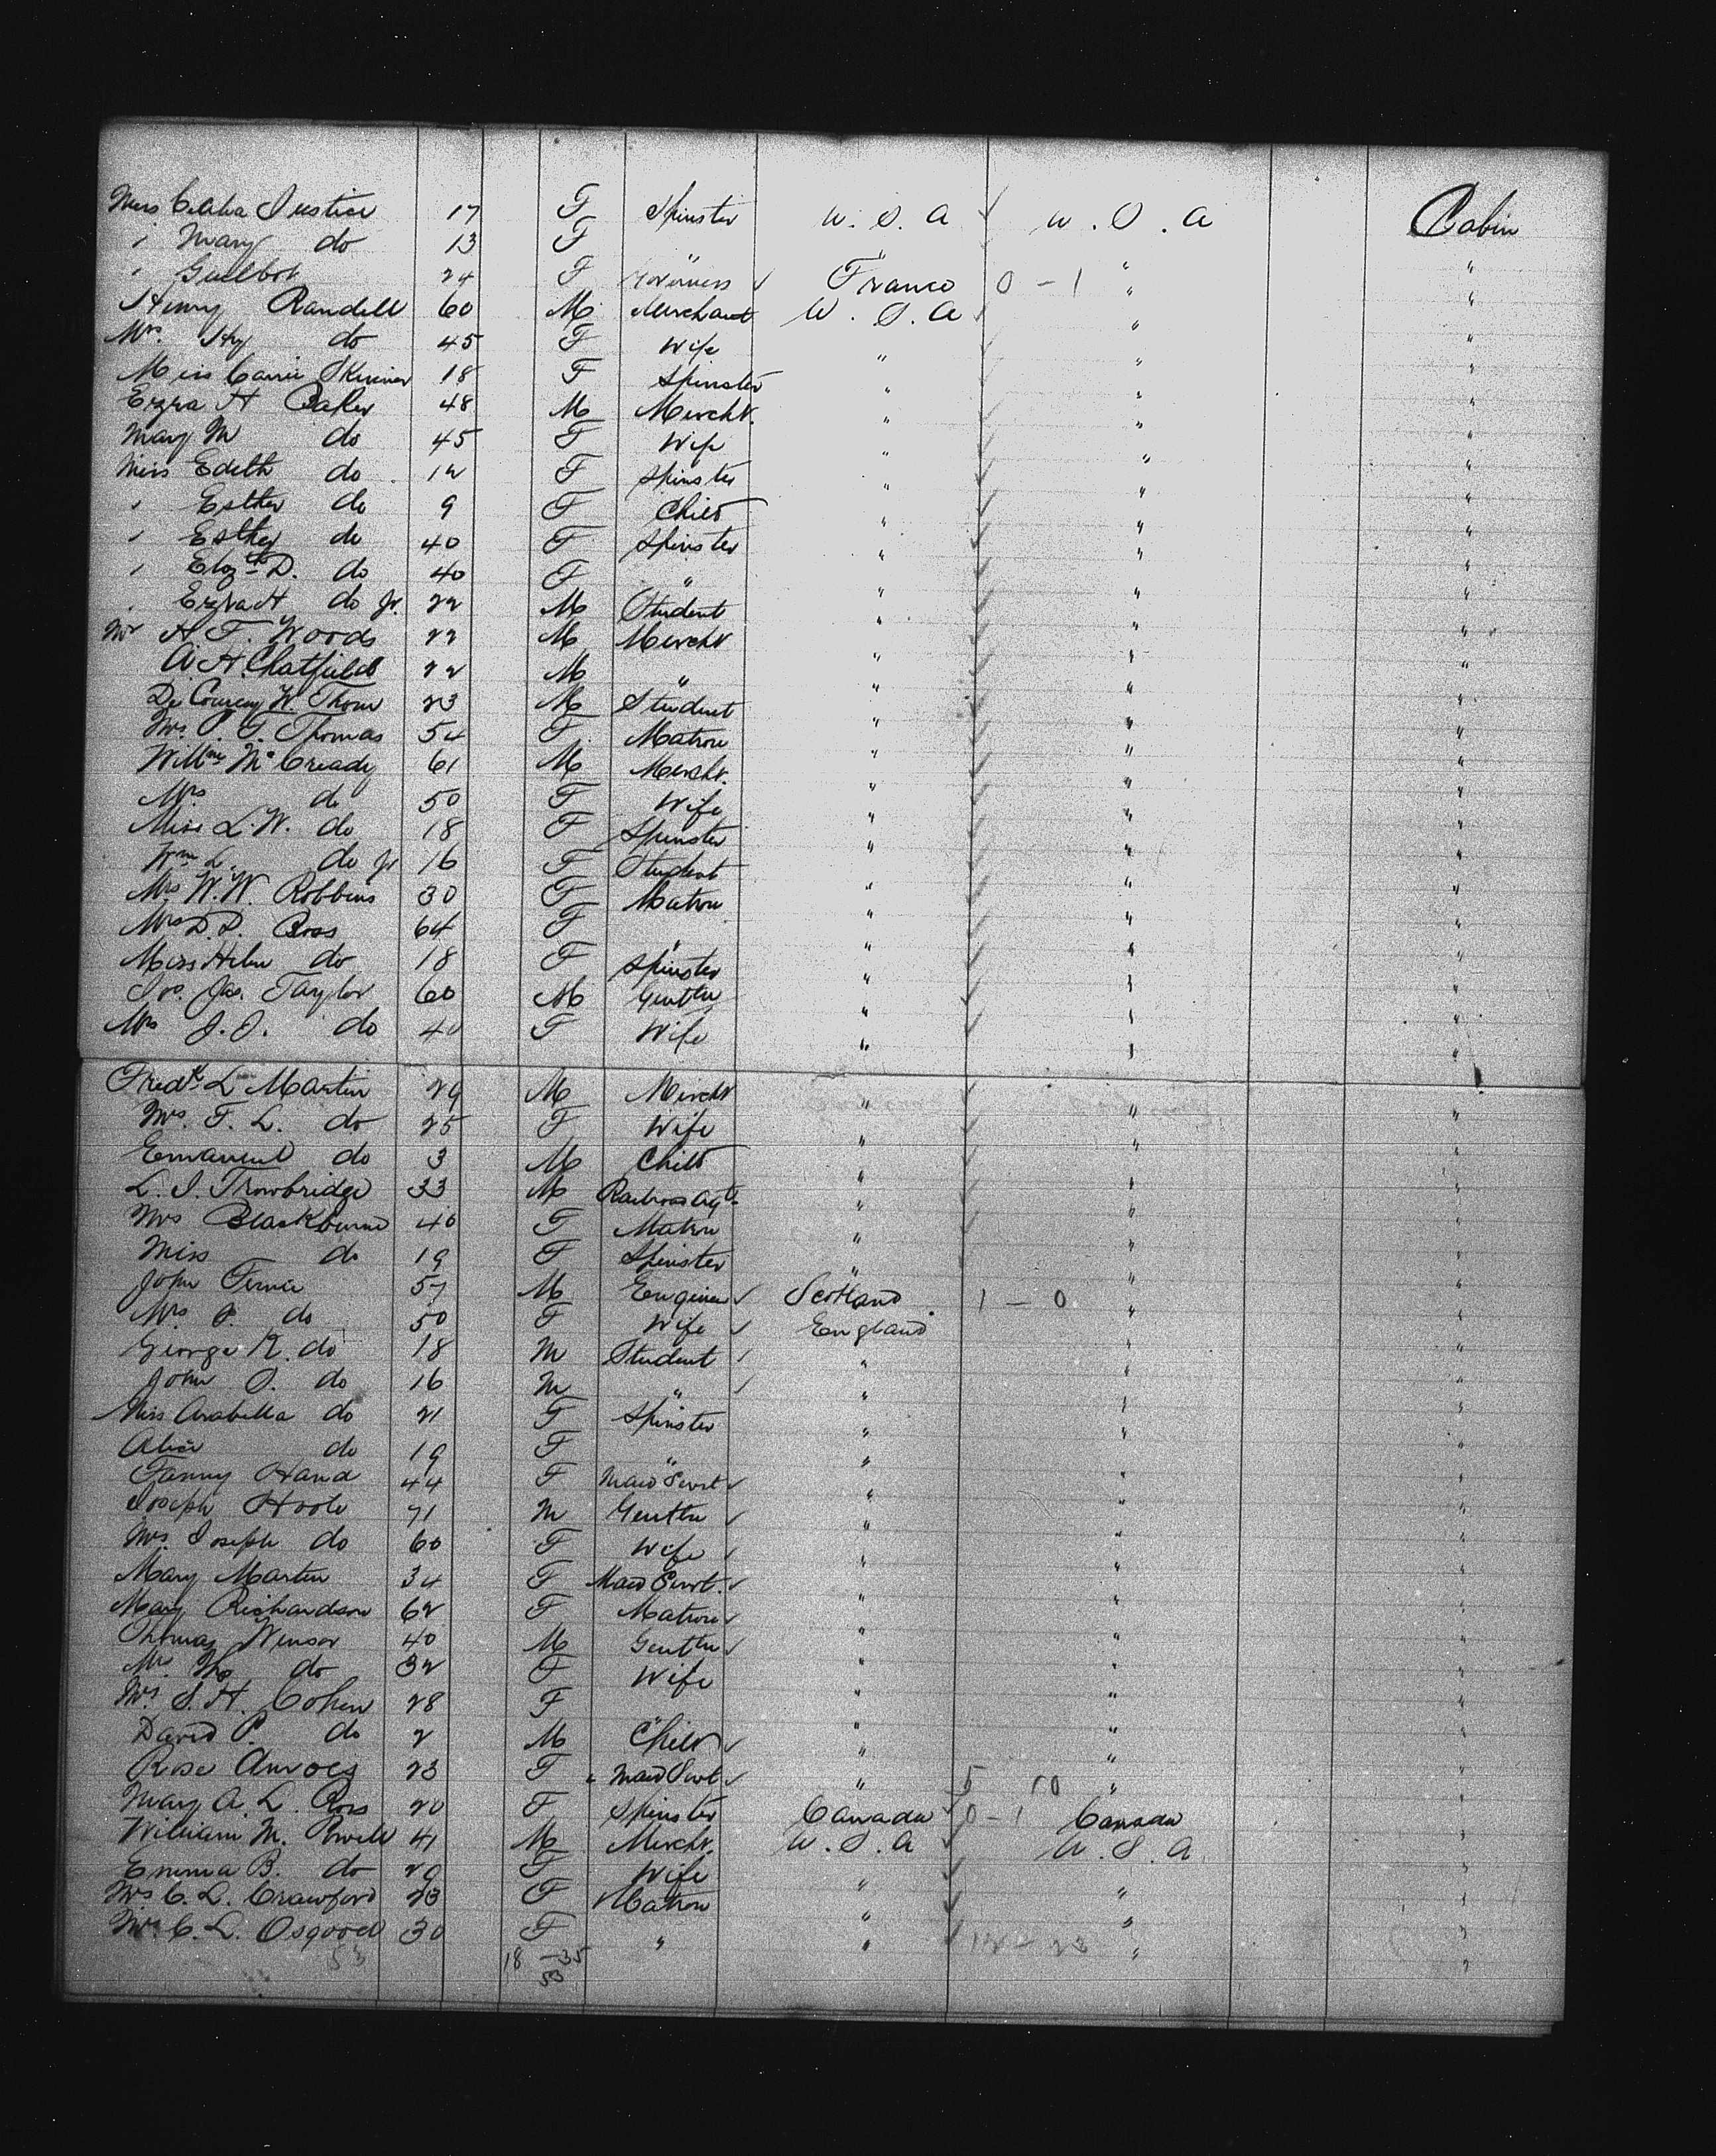 Miss Celilia Justice 17 F Spinster U.S.A U.S.A Cabin
" Mary do 13 F " " " "
" Guilbot 24 F Governess France 0-1 " "
Henry Randell 60 M Merchant U.S.A " "
Mrs. Hy do 45 F Wife " " "
Miss Carrie Skinner 18 F Spinster " " "
Ezra H Baker 48 M Mercht. " " "
Mary M do 45 F Wife " " "
Miss Edith do 12 F Spinster " " "
" Esther do 9 F Child " " "
" Esther do 40 F Spinster " " "
" Elozth D. do 40 F " " " "
" Ezra H do Jr. 22 M Student " " "
Mr H F. Woods 22 M Mercht " " "
A. H. Chatfield 22 M " " " "
De Courcy W. Thom 23 M Student " " "
Mrs. P. F. Thomas 54 F Matron " " "
Willm McCready 61 M Mercht. " " "
Mrs do 50 F Wife " " "
Miss L. W. do 18 F Spinster " " "
Wm L. do Jr 16 F Student " " "
Mrs W. W. Robbins 30 F Matron " " "
Mrs D. P. Ross 64 F " " " "
Miss Helen do 18 F Spinster " " "
Jos. Jas. Taylor 60 M Gentln " " "
Mrs J. J. do 40 F Wife " " "
Fredk L Martin 29 M Mercht " " "
Mrs. F. L. do 25 F Wife " " "
Emanuel do 3 M Child " " "
L. S. Trowbridge 33 M Railroad Agt. " " "
Mrs Blackburne 40 F Matron " " "
Miss do 19 F Spinster " " "
John Fernie 57 M Engineer Scotland 1-0 " "
Mrs. S. do 50 F Wife England " "
George R. do 18 M Student " " "
John S. do 16 M " " " "
Miss Arabella do 21 F Spinster " " "
Alice do 19 F " " " "
Fanny Hand 44 F Maid Servt " " "
Joseph Hoole 71 M Gentln " " "
Mrs. Joseph do 60 F Wife " " "
Mary Martin 34 F Maid Servt. " " "
Mary Richardson 62 F Matron " " "
Thomas Winsor 40 M Gentln " " "
Mrs. Ths do 32 F Wife " " "
Mrs. S. H. Cohen 28 F " " " "
David P. do 2 M Child " " "
Rose 23 F Maid Servt " 5 10 " "
Mary A. L. Ross 20 F Spinster Canada 0-1 Canada "
William M. Powell 41 M Mercht. U.S.A U.S.A. "
Emma B. do 29 F Wife " " "
Mrs C. L. Crawford 23 F Matron " " "
Mrs. C. L. Osgood 30 F " " 12-23 " "
53 18-35
53